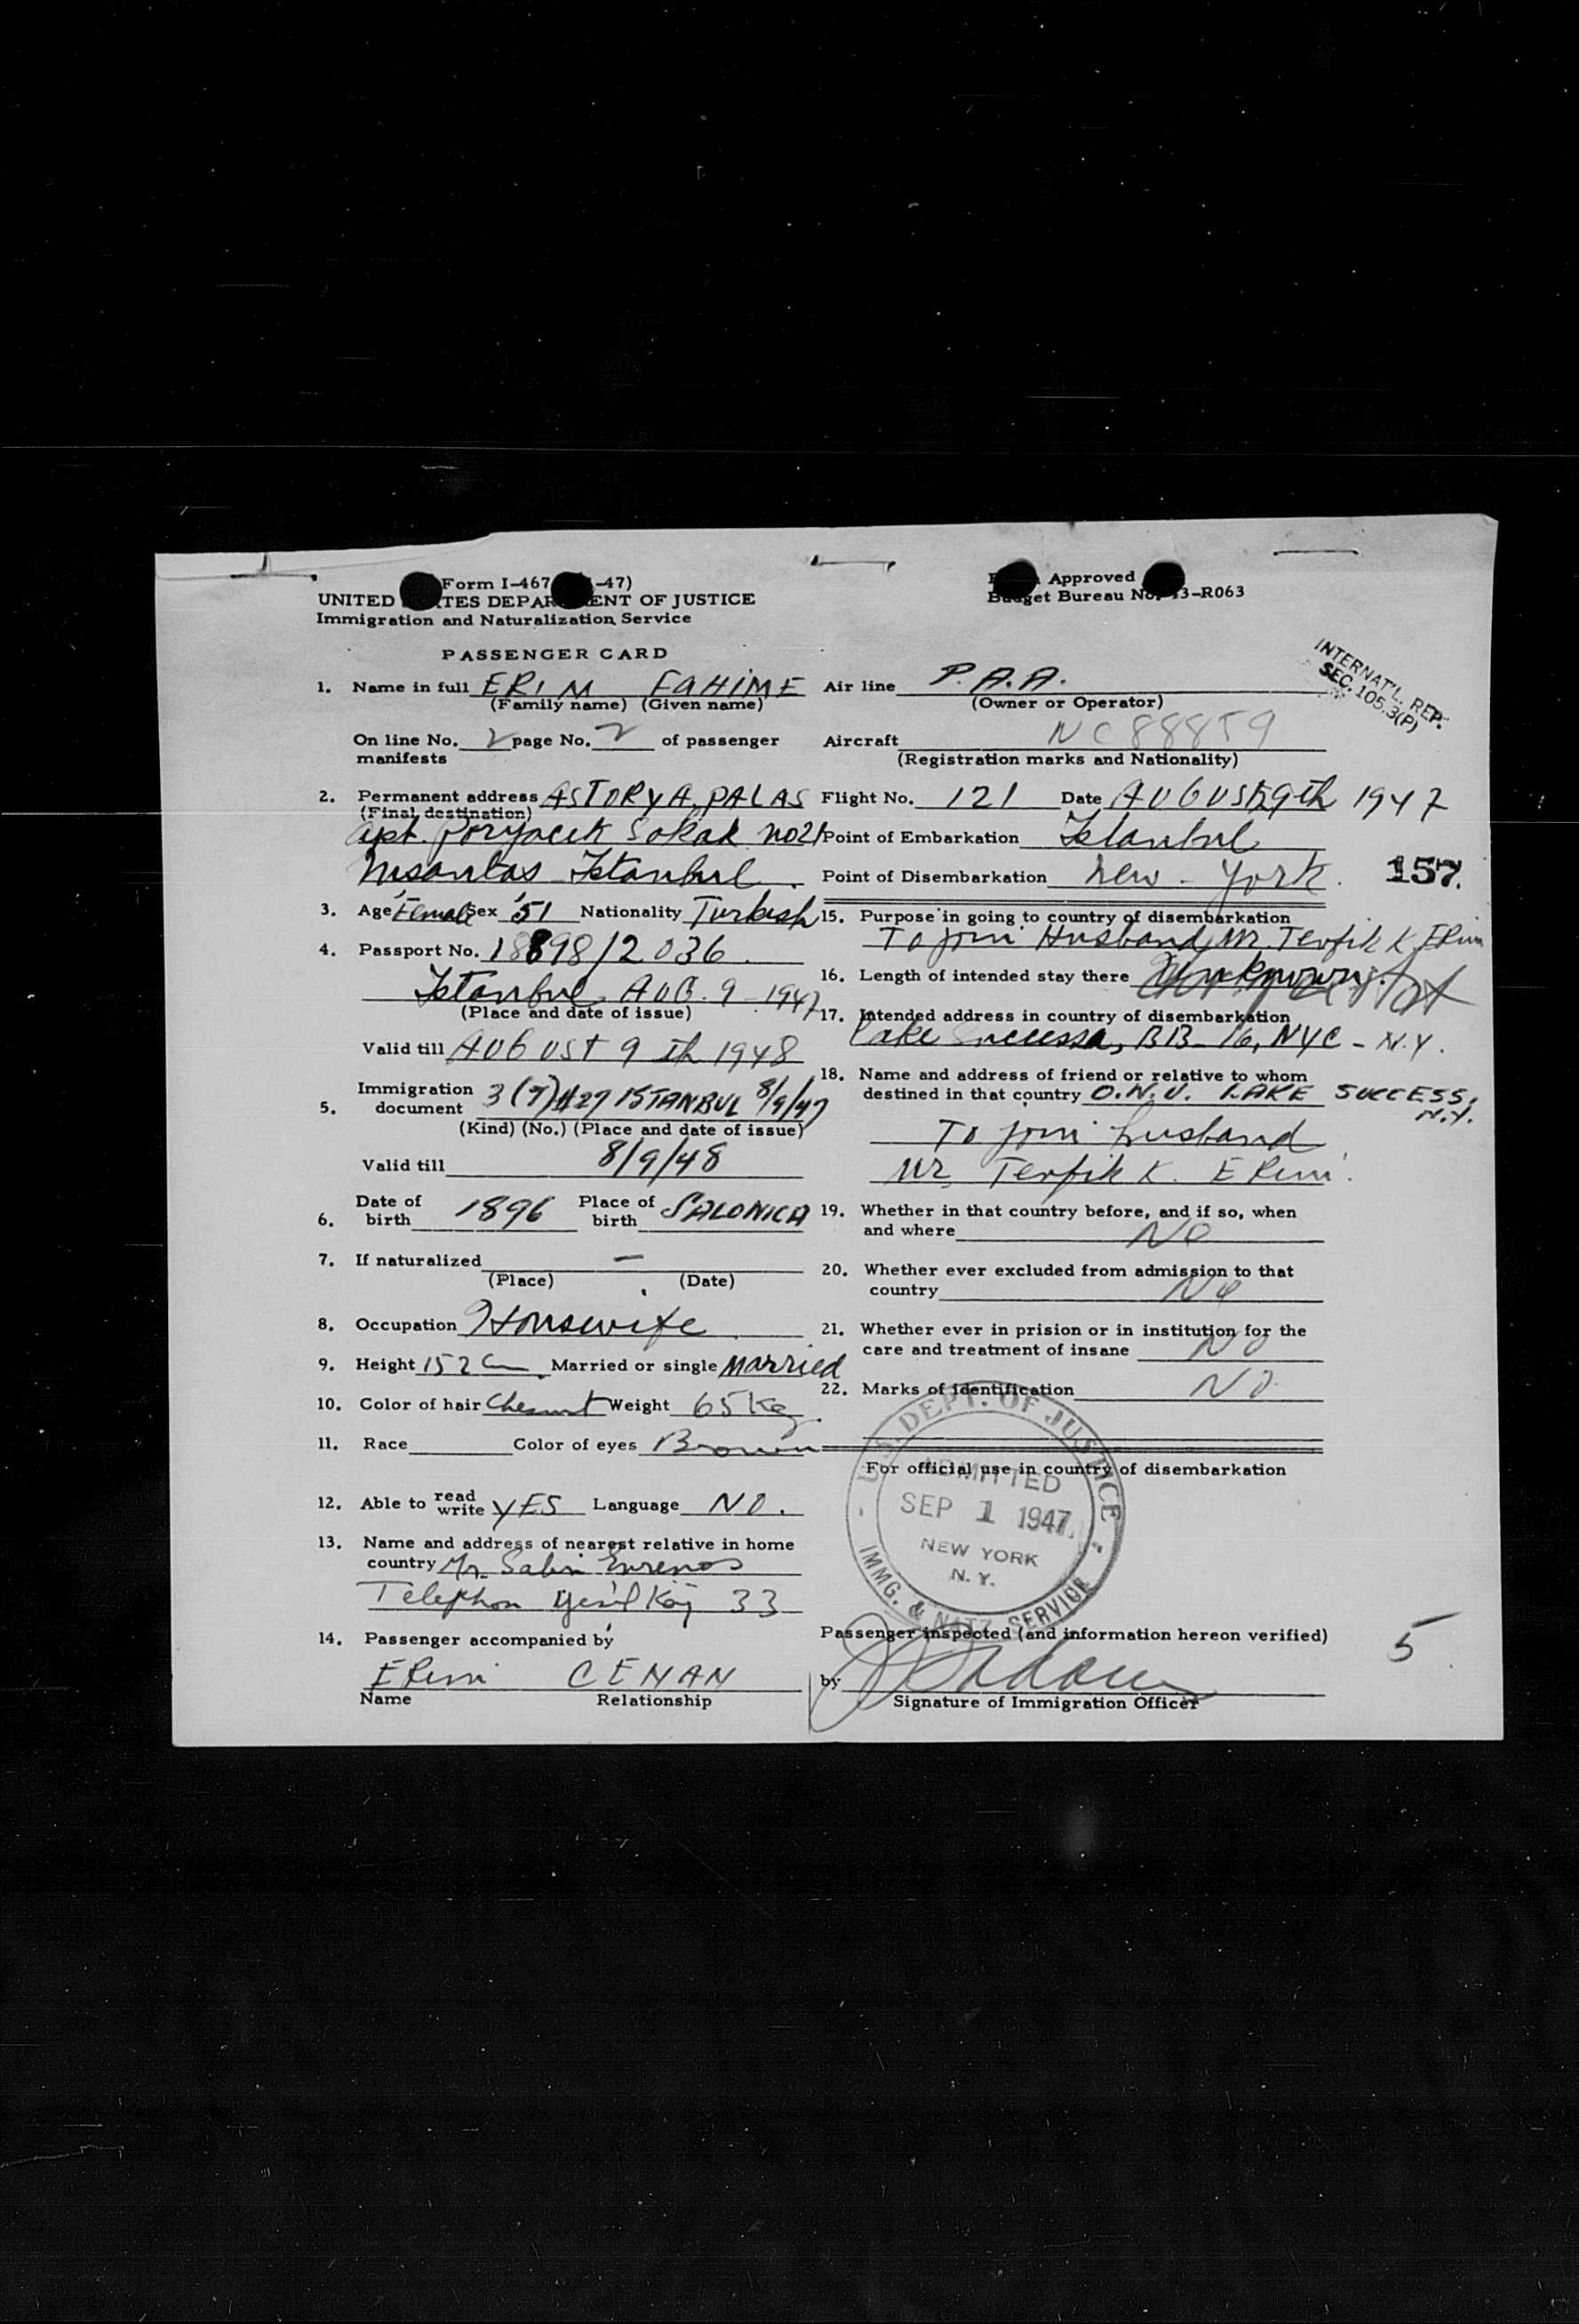 Form I-467 -47)
UNITED TES DEPAR ENT OF JUSTICE
Immigration and Naturalization Service
PASSENGER CARD
1. Name in full ERIM FAHIME
(Family name) (Given name)
On line No. 2 page No. 2 of passenger
manifests
2. Permanent address ASTORYA PALAS
(Final destination)
apt. Sokak no 21
Nisantas Istanbul
3. Age Female Sex 51 Nationality Turkish
4. Passport No. 18898/2036
Istanbul AUG. 9 - 1947
(Place and date of issue)
Valid till AUGUST 9 th 1948
Immigration
5. document 3(7) #27 ISTANBUL 8/9/47
(Kind) (No.) (Place and date of issue)
Valid till 8/9/48
6. Date of birth 1896 Place of birth SALONICA
7. If naturalized —
(Place) (Date)
8. Occupation Housewife
9. Height 152 cm Married or single Married
10. Color of hair Chesnut Weight 65 Kg
11. Race Color of eyes Brown
12. Able to read write YES Language NO.
13. Name and address of nearest relative in home
country Mr. Sabri Evrenos
Telephon Yesil Köy 33
14. Passenger accompanied by
Erim CENAN
Name Relationship
Approved
Budget Bureau No. 43-R063
INTERNAT'L. REP.
SEC. 105.3(P)
Air line P.A.A.
(Owner or Operator)
Aircraft NC 88859
(Registration marks and Nationality)
Flight No. 121 Date AUGUST 29th 1947
Point of Embarkation Istanbul
Point of Disembarkation New - York 157.
15. Purpose in going to country of disembarkation
To join Husband, Mr. Tevfik K Erim
16. Length of intended stay there Unknown
17. Intended address in country of disembarkation
Lake Success, BB-16, NYC - N.Y.
18. Name and address of friend or relative to whom
destined in that country O.N.U. LAKE SUCCESS,
N.Y.
To join husband
Mr. Tevfik K. Erim.
19. Whether in that country before, and if so, when
and where NO
20. Whether ever excluded from admission to that
country NO
21. Whether ever in prision or in institution for the
care and treatment of insane NO
22. Marks of identification NO
For official use in country of disembarkation
U.S. DEPT. OF JUSTICE
ADMITTED
SEP 1 1947
NEW YORK
N.Y.
IMMG. & NATZ. SERVICE
Passenger inspected (and information hereon verified)
5
by
Signature of Immigration Officer